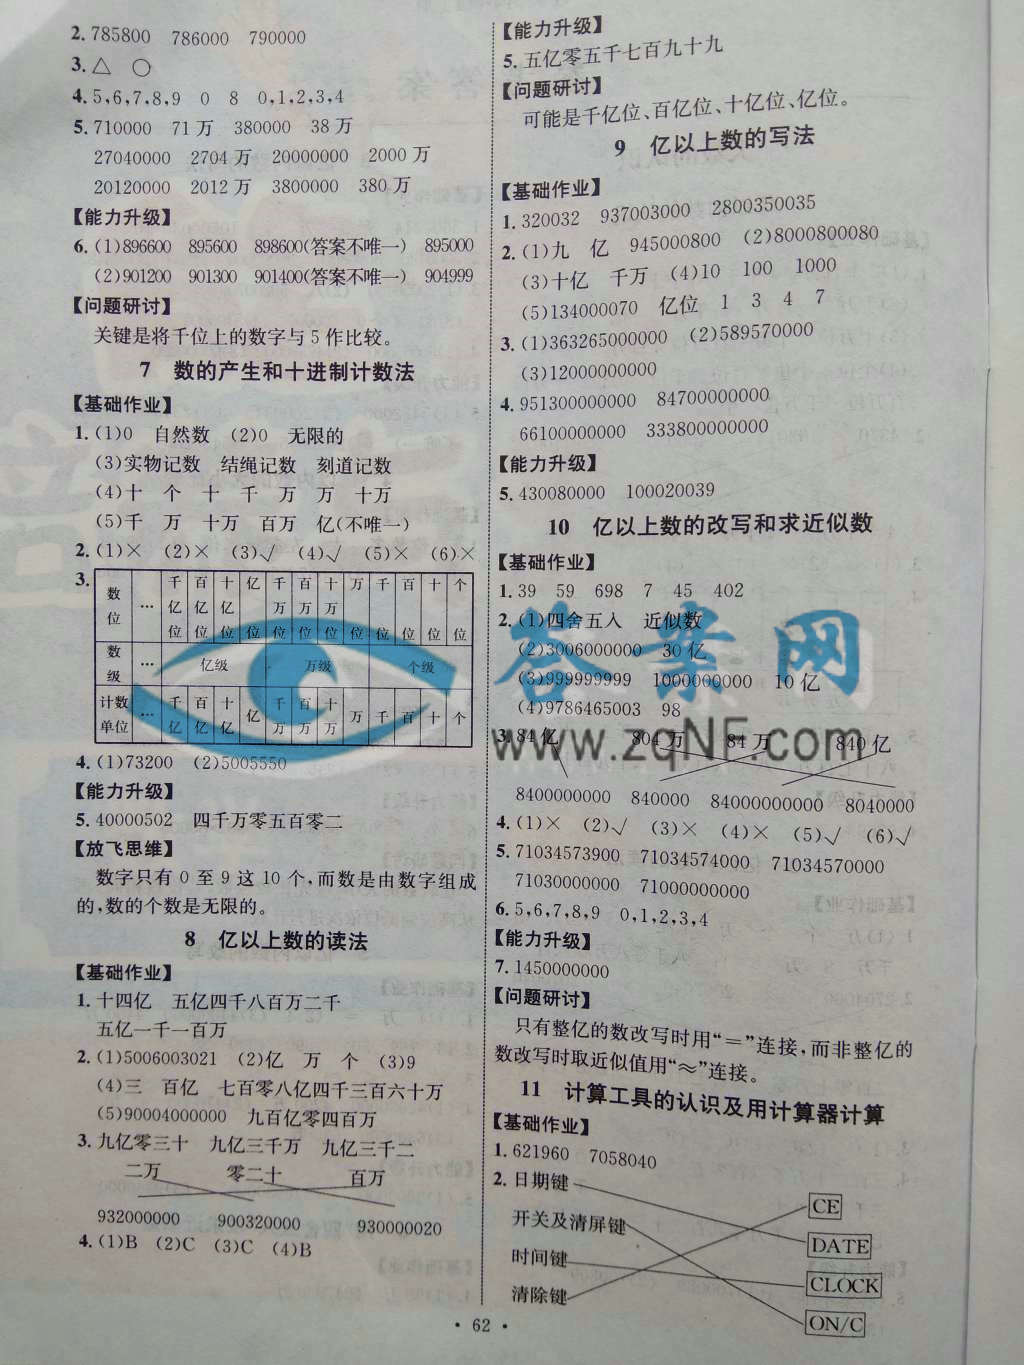 2. 785800 786000 790000
3. △ ○
4. 5,6,7,8,9 0 8 0,1,2,3,4
5. 710000 71万 380000 38万
27040000 2704万 20000000 2000万
20120000 2012万 3800000 380万
【能力升级】
6. (1)896600 895600 898600(答案不唯一) 895000
(2)901200 901300 901400(答案不唯一) 904999
【问题研讨】
关键是将千位上的数字与5作比较。
7 数的产生和十进制计数法
【基础作业】
1. (1)0 自然数 (2)0 无限的
(3)实物记数 结绳记数 刻道记数
(4)十 个 十 千 万 万 十万
(5)千 万 十万 百万 亿(不唯一)
2. (1)× (2)× (3)√ (4)√ (5)× (6)×
3.
数位 … 千亿位 百亿位 十亿位 亿位 千万位 百万位 十万位 万位 千位 百位 十位 个位
数级 … 亿级 万级 个级
计数单位 … 千亿 百亿 十亿 亿 千万 百万 十万 万 千 百 十 个
4. (1)73200 (2)5005550
【能力升级】
5. 40000502 四千万零五百零二
【放飞思维】
数字只有0至9这10个,而数是由数字组成
的,数的个数是无限的。
8 亿以上数的读法
【基础作业】
1. 十四亿 五亿四千八百万二千
五亿一千一百万
2. (1)5006003021 (2)亿 万 个 (3)9
(4)三 百亿 七百零八亿四千三百六十万
(5)90004000000 九百亿零四百万
3. 九亿零三十 九亿三千万 九亿三千二
二万 零二十 百万
932000000 900320000 930000020
4. (1)B (2)C (3)C (4)B
【能力升级】
5. 五亿零五千七百九十九
【问题研讨】
可能是千亿位、百亿位、十亿位、亿位。
9 亿以上数的写法
【基础作业】
1. 320032 937003000 2800350035
2. (1)九 亿 945000800 (2)8000800080
(3)十亿 千万 (4)10 100 1000
(5)134000070 亿位 1 3 4 7
3. (1)363265000000 (2)589570000
(3)12000000000
4. 951300000000 84700000000
66100000000 333800000000
【能力升级】
5. 430080000 100020039
10 亿以上数的改写和求近似数
【基础作业】
1. 39 59 698 7 45 402
2. (1)四舍五入 近似数
(2)3006000000 30亿
(3)999999999 1000000000 10亿
(4)9786465003 98
3. 84亿 804万 84万 840亿
8400000000 840000 84000000000 8040000
4. (1)× (2)√ (3)× (4)× (5)√ (6)√
5. 71034573900 71034574000 71034570000
71030000000 71000000000
6. 5,6,7,8,9 0,1,2,3,4
【能力升级】
7. 1450000000
【问题研讨】
只有整亿的数改写时用“=”连接,而非整亿的
数改写时取近似值用“≈”连接。
11 计算工具的认识及用计算器计算
【基础作业】
1. 621960 7058040
2. 日期键
开关及清屏键
时间键
清除键
CE
DATE
CLOCK
ON/C
· 62 ·
答案网
www.zqNF.com